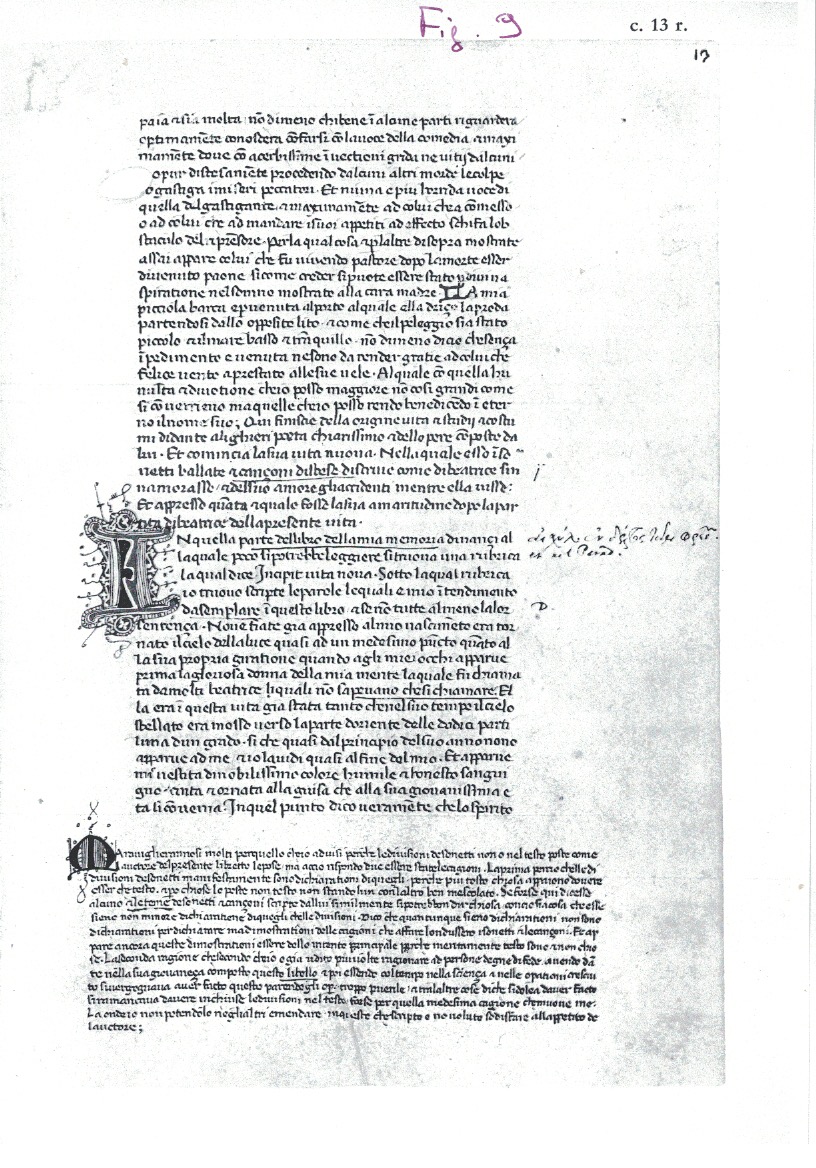 Fig. 9
c. 13 r.
13
paia & sia molta · nō dimeno chi bene ī alcune parti riguardera
optimamēte conoscera cōfarsi cō la uoce della comedia & maxi
mamēte doue cō acerbissime īuectioni grida ne uitii dalcuni
o pur distesamēte procedendo dalcuni altri morde le colpe
o gastiga i miseri peccatori · Et niuna e piu horrida uoce di
quella del gastigante & maxīmamēte ad colui che a cōmesso
o ad colui che ad mandare i suoi appetiti ad effecto schifa lob
staculo del riprēsore · Per la qual cosa & p laltre di sopra mostrate
assai appare colui che fu uiuendo pastore dopo la morte esser
diuenuto paone si come creder si puote essere stato p diuina
spiratione nel sonno mostrato alla cara madre · La mia
picciola barca e peruenuta al porto al quale ella driço la proda
partendosi dallo opposito lito · & come che il peleggio sia stato
piccolo & il mare basso & trāquillo · nō dimeno di cio che sença
īpedimento e uenuta ne sono da render gratie ad colui che
felice uento a prestato alle sue uele · Al quale cō quella hu
milta & diuotione che io posso maggiore nō cosi grandi come
si cōuerrieno ma quelle che io posso rendo benedicēdo ī eter
no il nome suo; Qui finisce della origine uita & studii & costu
mi di dante alighieri poeta chiarissimo & dello pere cōposte da
lui · Et comincia la sua uita nuoua · Nella quale esso ī so
netti ballate & cançoni distese discriue come di beatrice sin
namorasse & del suo amore gli accidenti mentre ella uisse:
Et appresso quāta & quale fosse la sua amaritudine dopo la par
tita di beatrice della presente uita ·
IN quella parte del libro della mia memoria dinançi al
la quale poco si potrebbe leggere si truoua una rubrica
la qual dice Incipit uita noua · Sotto la qual rubrica
io truouo scripte le parole le quali e mio ītendimento
dasemplare ī questo libro & se nō tutte almeno la lor
sentença · Noue fiate gia appresso al mio nascimēto era tor
nato il cielo della luce quasi ad un medesimo pūcto quāto al
la sua propria giratione quando agli miei occhi apparue
prima la gloriosa donna della mia mente la quale fu chiama
ta da molti beatrice li quali nō sapeuano che si chiamare. El
la era ī questa uita gia stata tanto che nel suo tempo il cielo
stellato era mosso uerso la parte doriente delle dodici parti
luna dun grado · si che quasi dal principio del suo anno nono
apparue ad me & io la uidi quasi al fine del mio · Et apparue
mi uestita di nobilissimo colore humile & honesto sangui
gno · cinta & ornata alla guisa che alla sua giouanissima e
ta si cōuenia · In quel punto dico ueramēte che lo spirito
Marauiglierannosi molti per quello che io aduisi perche le diuisioni de sonetti non o nel testo poste come
lauctore del presente libretto le pose · ma accio rispondo due essere state le cagioni · La prima percio che le di
uisioni de sonetti manifestamente sono dichiarationi di quegli · per che piu tosto chiosa appaiono douere
esser che testo · & po chiose lo poste non testo non stando lun con laltro ben mescolato. Se forse qui dicesse
alcuno & le teme de sonetti & cançoni scripte da llui similmente si potrebbon dir chiosa · concio sia cosa che esse
sieno non minore dichiaratione di quegli che lle diuisioni · Dico che quantunque sieno dichiarationi non sono
dichiarationi per dichiarare ma dimostrationi delle cagioni che affare lo ndussero i sonetti & le cançoni. Et ap
pare ancora queste dimostrationi essere dello intento principale · perche meritamente testo sono & non chio
se · La seconda ragione e che secondo che io o gia udito piu uolte ragionare ad persone degne di fede · auendo dā
te nella sua giouaneça composto questo libello & poi essendo col tempo nella sciença & nelle operationi cresciu
to si uergognaua auer facto questo parendogli opa troppo puerile · & tra laltre cose di che si dolea dauer facto
si ramaricaua dauere inchiuse le diuisioni nel testo forse per quella medesima cagione che muoue me ·
La onde io non potendolo negli altri emendare in questo che scripto o no uoluto sodisfare allappetito de
lauctore;